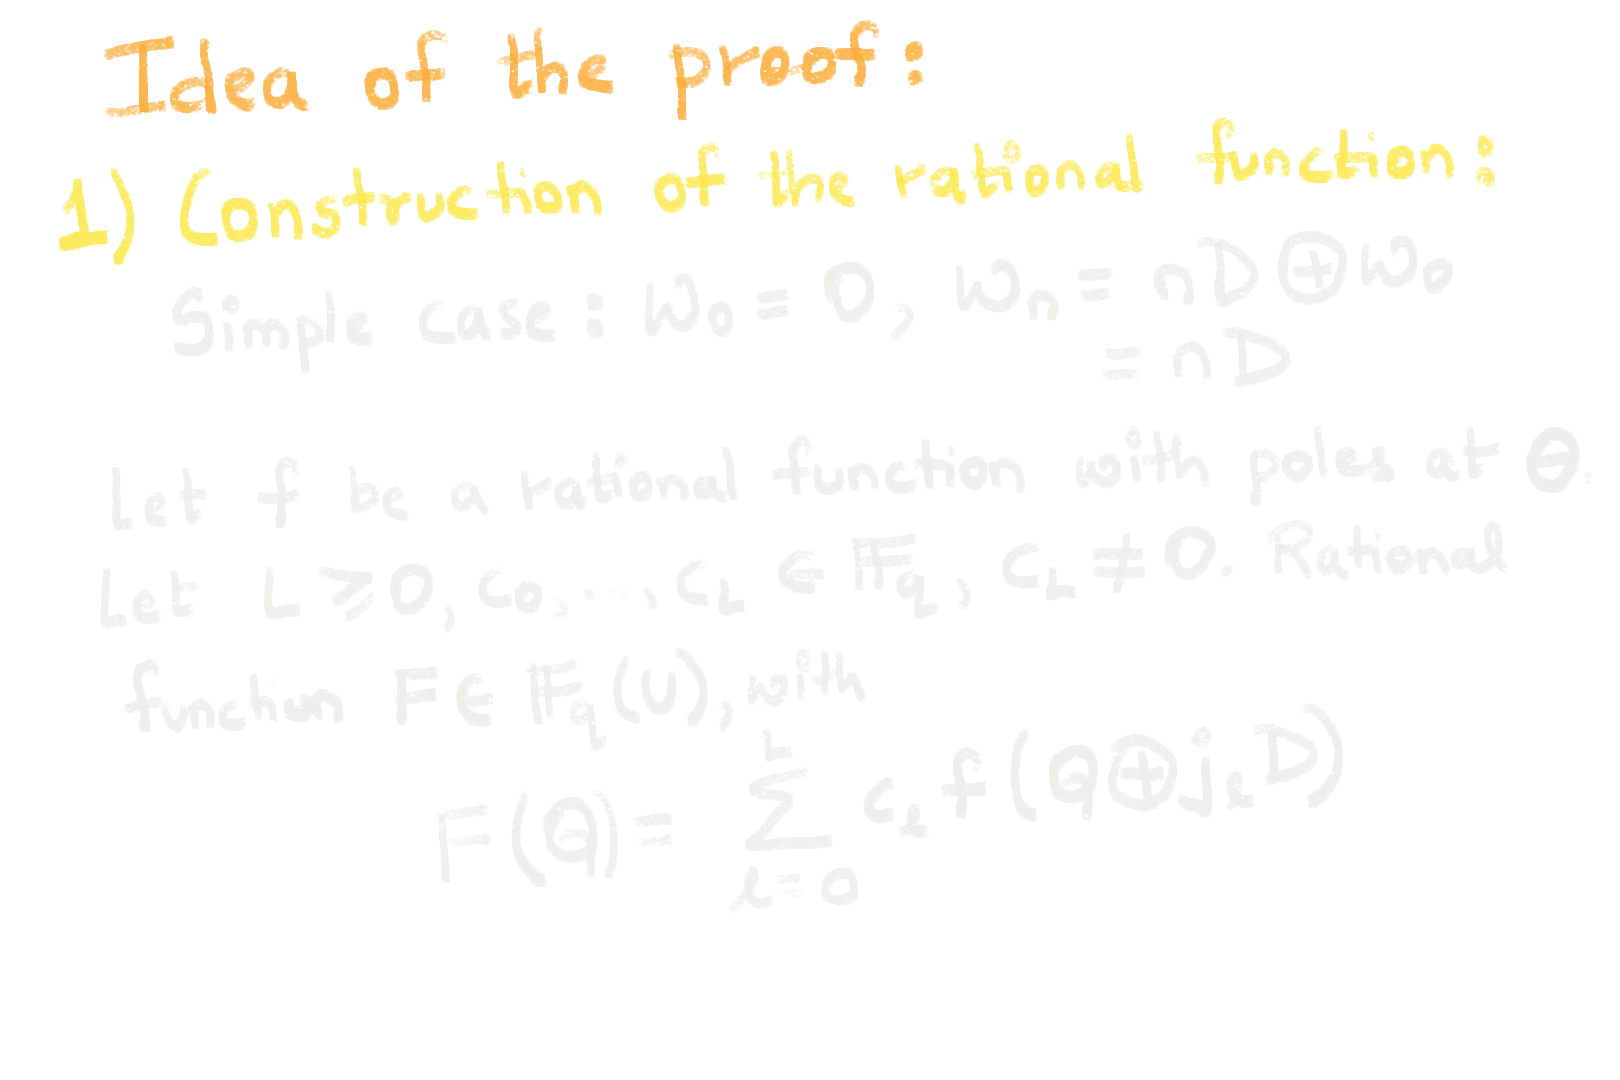 Idea of the proof:
1) Construction of the rational function:
Simple case: W₀ = O, Wₙ = nD ⊕ W₀
= nD
Let f be a rational function with poles at Θ.
Let L ⩾ 0, c₀, ..., c_L ∈ 𝔽_q, c_L ≠ 0. Rational
function F ∈ 𝔽_q(U), with
F(Q) = ∑_{l=0}^{L} c_l f(Q ⊕ j_l D)